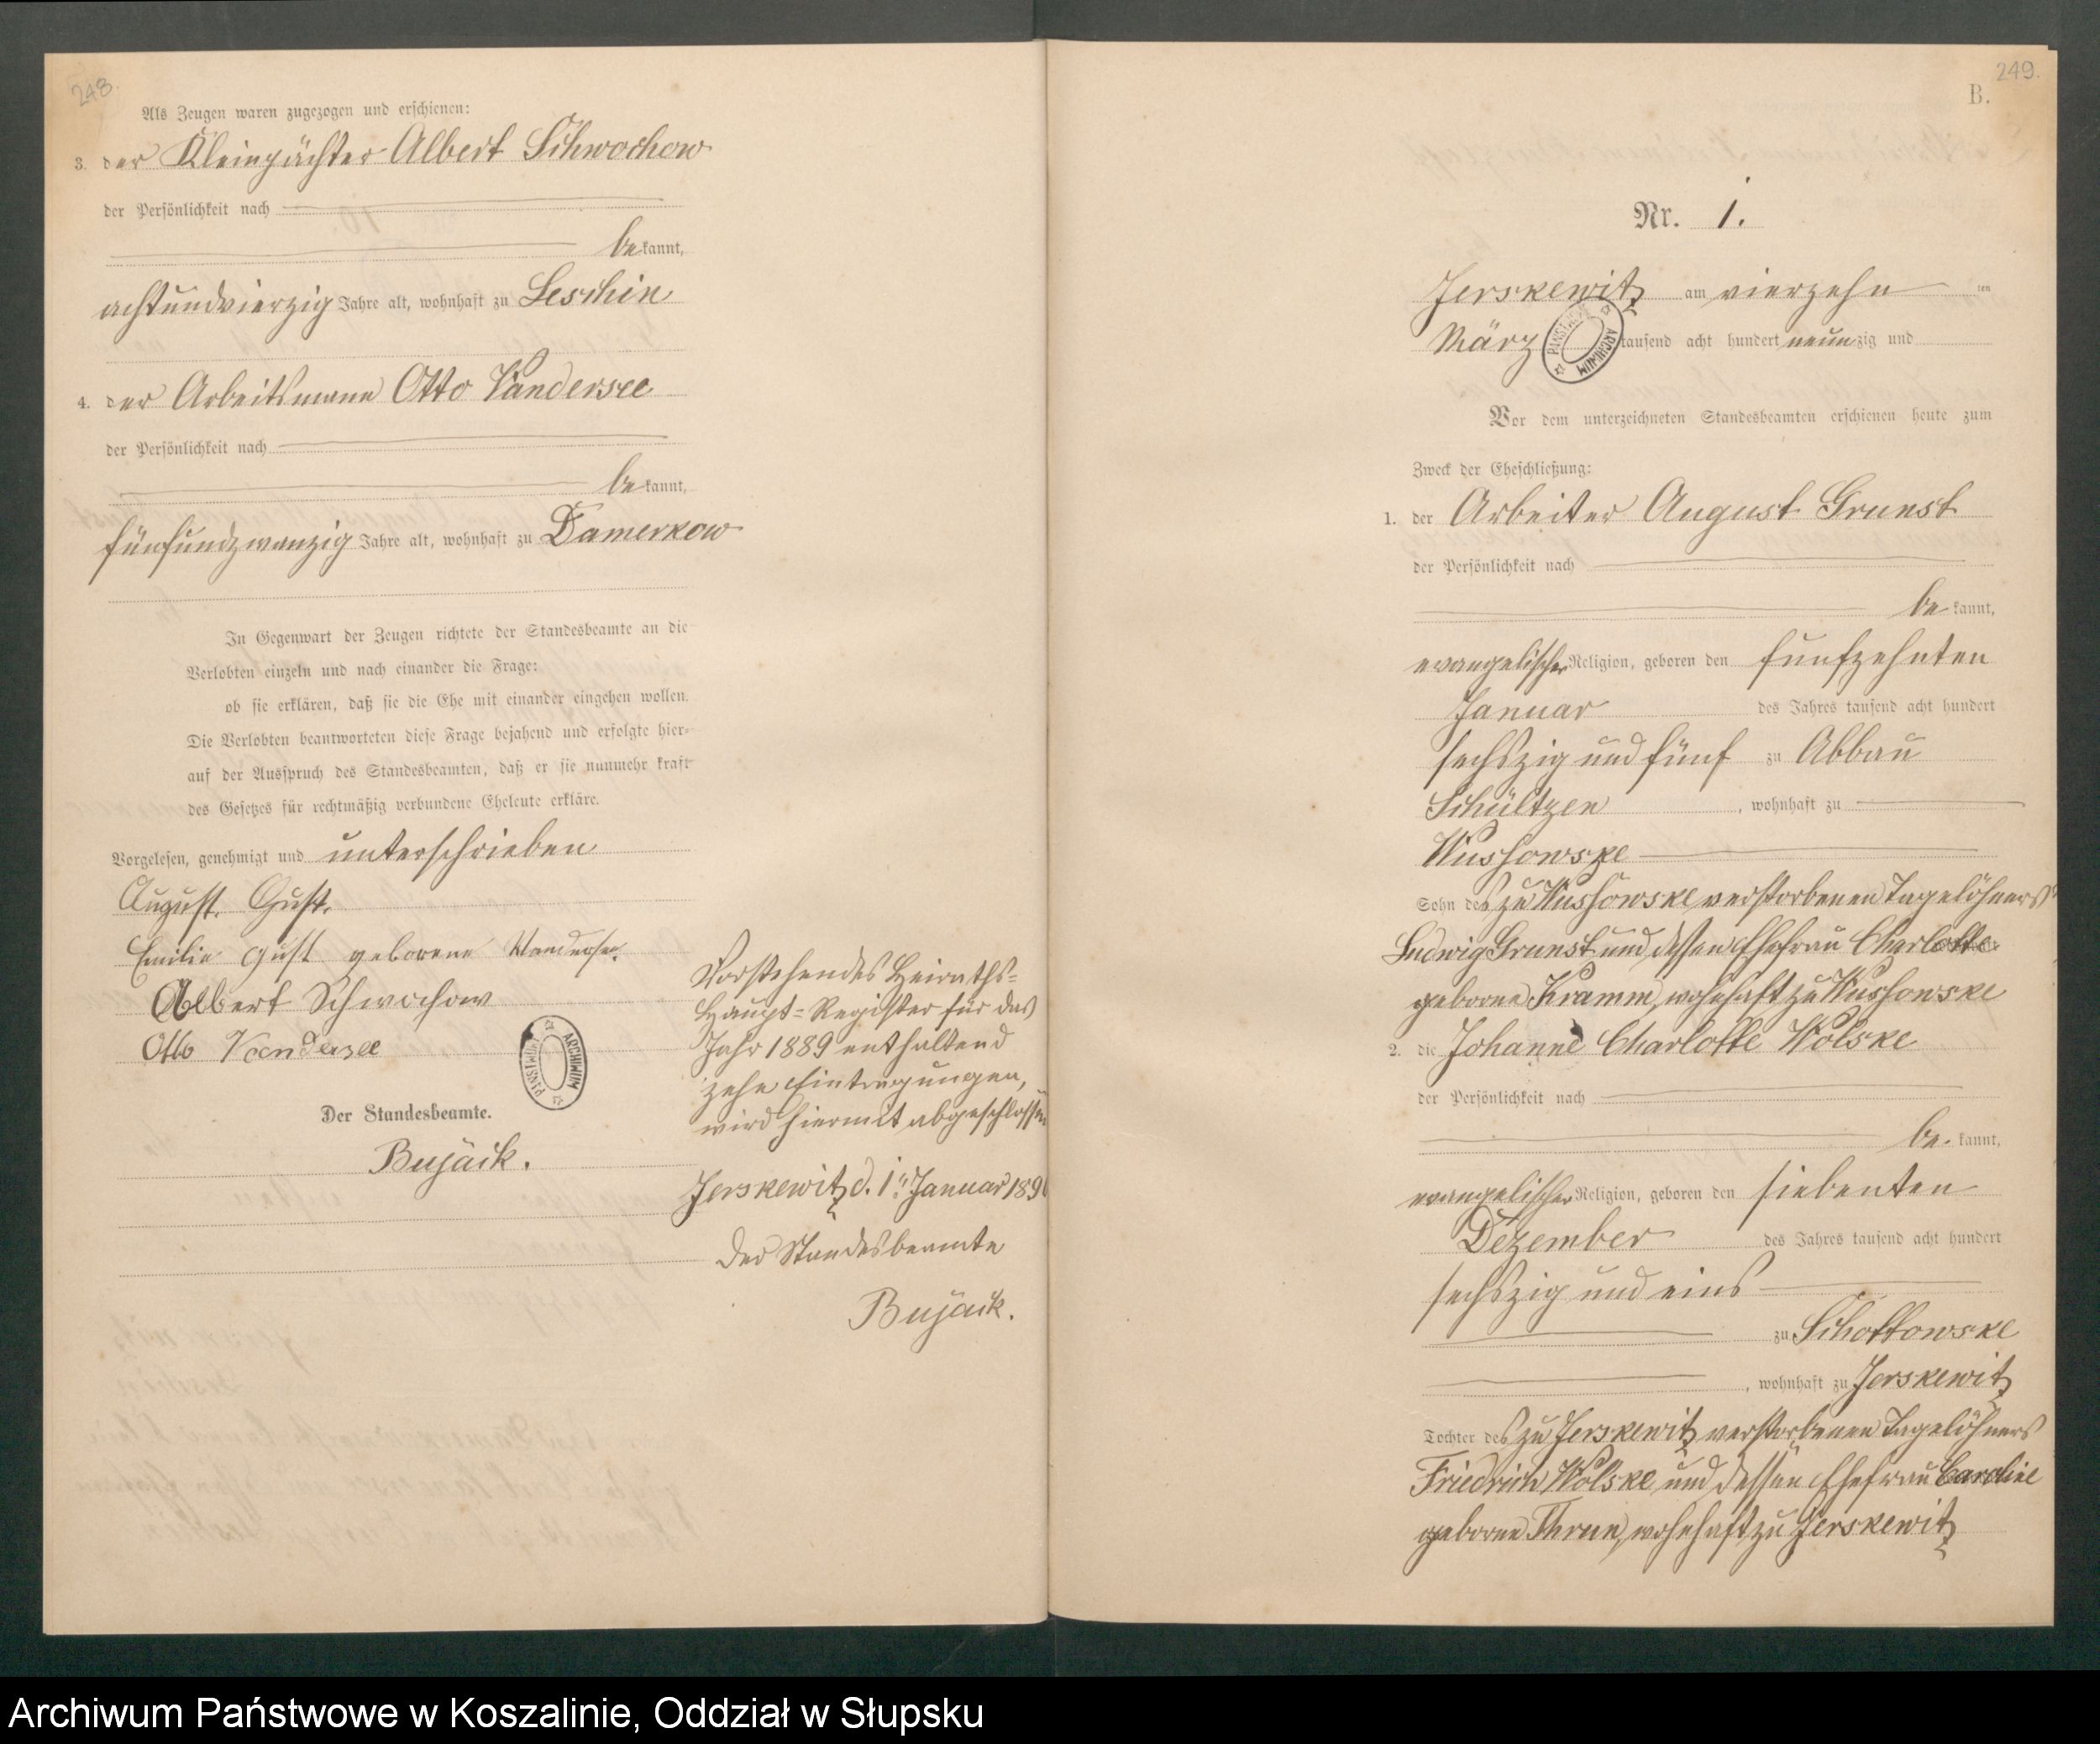 248.
Als Zeugen waren zugezogen und erschienen:
3. der Kleinpächter Albert Schwochow
der Persönlichkeit nach
bekannt,
achtundvierzig Jahre alt, wohnhaft zu Leschin
4. der Arbeitsmann Otto Vandersee
der Persönlichkeit nach
bekannt,
fünfundzwanzig Jahre alt, wohnhaft zu Damerkow
In Gegenwart der Zeugen richtete der Standesbeamte an die
Verlobten einzeln und nach einander die Frage:
ob sie erklären, daß sie die Ehe mit einander eingehen wollen.
Die Verlobten beantworteten diese Frage bejahend und erfolgte hier-
auf der Ausspruch des Standesbeamten, daß er sie nunmehr kraft
des Gesetzes für rechtmäßig verbundene Eheleute erkläre.
Vorgelesen, genehmigt und unterschrieben
August Gust.
Emilie Gust geborene Wandersee.
Albert Schwochow
Otto Vandersee
PAŃSTWOWE ARCHIWUM
Der Standesbeamte.
Bujack.
Vorstehendes Heiraths-
Haupt-Register für das
Jahr 1889 enthaltend
zehn Eintragungen,
wird hiermit abgeschlossen
Jerskewitz d. 1ten Januar 1890
Der Standesbeamte
Bujack.
249.
B.
Nr. 1.
Jerskewitz am vierzehn ten
März tausend acht hundert neunzig und
PAŃSTWOWE ARCHIWUM
Vor dem unterzeichneten Standesbeamten erschienen heute zum
Zweck der Eheschließung:
1. der Arbeiter August Grunst
der Persönlichkeit nach
bekannt,
evangelischer Religion, geboren den funfzehnten
Januar des Jahres tausend acht hundert
sechszig und fünf zu Abbau
Schültzen, wohnhaft zu
Wussowske
Sohn des zu Wussowske verstorbenen Tagelöhners
Ludwig Grunst und dessen Ehefrau Charlotte
geborne Kramm, wohnhaft zu Wussowske
2. die Johanne Charlotte Wolske
der Persönlichkeit nach
bekannt,
evangelischer Religion, geboren den siebenten
Dezember des Jahres tausend acht hundert
sechszig und eins
zu Schottowske
, wohnhaft zu Jerskewitz
Tochter des zu Jerskewitz verstorbenen Tagelöhners
Friedrich Wolske und dessen Ehefrau Caroline
geborne Thrun, wohnhaft zu Jerskewitz
Archiwum Państwowe w Koszalinie, Oddział w Słupsku